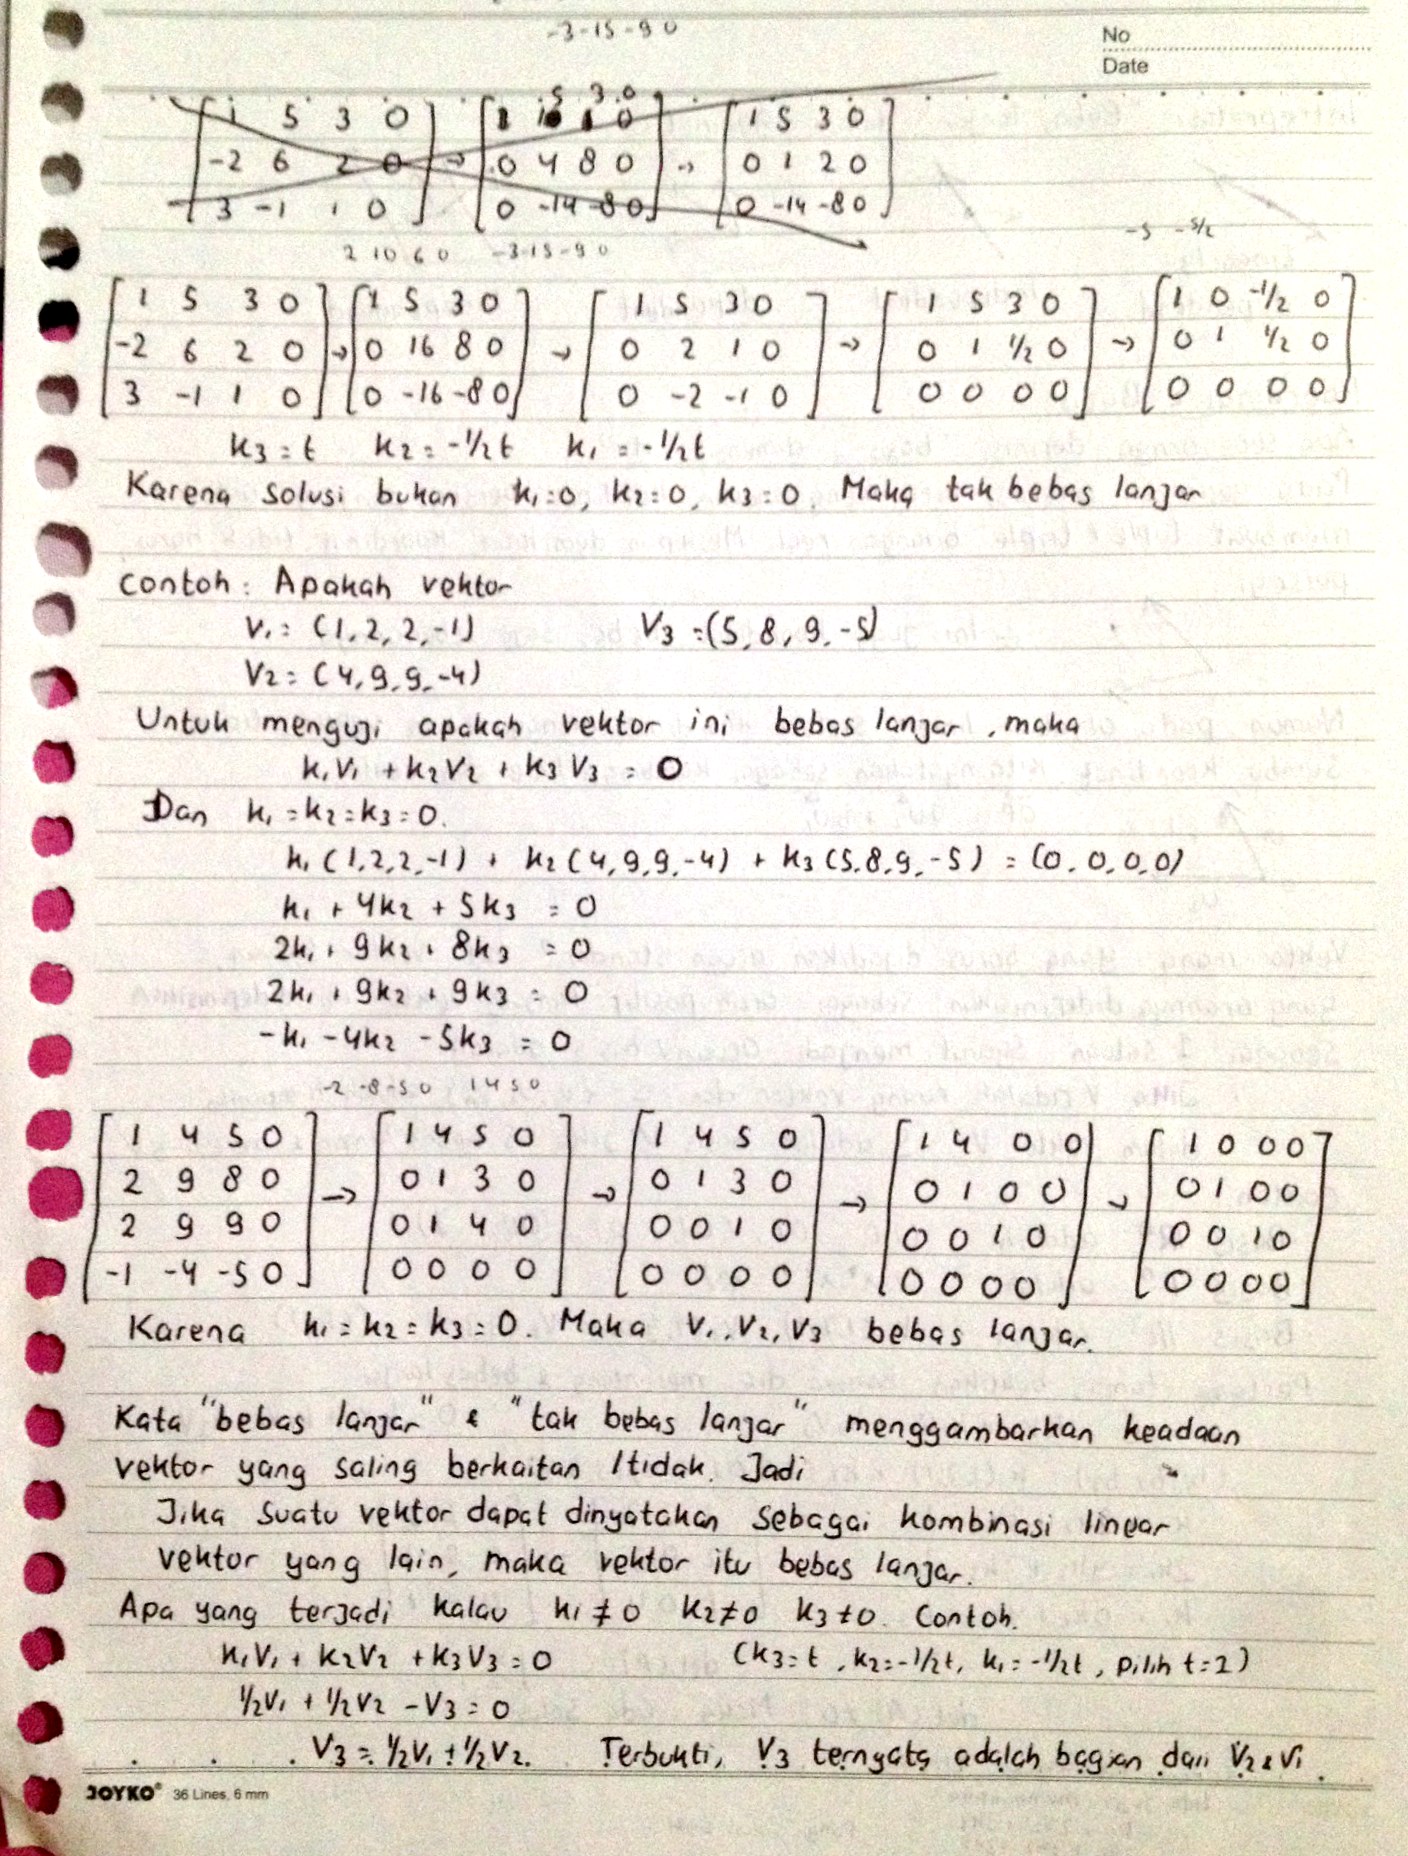 -3 -15 -9 0
No
Date
5 3 0
1 5 3 0 → 1 1 0 → 1 5 3 0
-2 6 2 0 0 4 8 0 0 1 2 0
3 -1 1 0 0 -14 -8 0 0 -14 -8 0
2 10 6 0 -3 -15 -9 0 -5 -5/2
1 5 3 0 → 1 5 3 0 → 1 5 3 0 → 1 5 3 0 → 1 0 -1/2 0
-2 6 2 0 0 16 8 0 0 2 1 0 0 1 1/2 0 0 1 1/2 0
3 -1 1 0 0 -16 -8 0 0 -2 -1 0 0 0 0 0 0 0 0 0
k3 = t k2 = -1/2t k1 = -1/2t
Karena solusi bukan k1=0, k2=0, k3=0. Maka tak bebas lanjar
Contoh: Apakah vektor
V1 = (1, 2, 2, -1) V3 = (5, 8, 9, -5)
V2 = (4, 9, 9, -4)
Untuk menguji apakah vektor ini bebas lanjar, maka
k1V1 + k2V2 + k3V3 = 0
Dan k1 = k2 = k3 = 0.
k1(1,2,2,-1) + k2(4,9,9,-4) + k3(5,8,9,-5) = (0,0,0,0)
k1 + 4k2 + 5k3 = 0
2k1 + 9k2 + 8k3 = 0
2k1 + 9k2 + 9k3 = 0
-k1 - 4k2 - 5k3 = 0
-2 -8 -5 0 1 4 5 0
1 4 5 0 → 1 4 5 0 → 1 4 5 0 → 1 4 0 0 → 1 0 0 0
2 9 8 0 0 1 3 0 0 1 3 0 0 1 0 0 0 1 0 0
2 9 9 0 0 1 4 0 0 0 1 0 0 0 1 0 0 0 1 0
-1 -4 -5 0 0 0 0 0 0 0 0 0 0 0 0 0 0 0 0 0
Karena k1 = k2 = k3 = 0. Maka V1, V2, V3 bebas lanjar.
Kata "bebas lanjar" & "tak bebas lanjar" menggambarkan keadaan
vektor yang saling berkaitan / tidak. Jadi
Jika suatu vektor dapat dinyatakan sebagai kombinasi linear
vektor yang lain, maka vektor itu bebas lanjar.
Apa yang terjadi kalau k1 ≠ 0 k2 ≠ 0 k3 ≠ 0. Contoh.
k1V1 + k2V2 + k3V3 = 0 (k3 = t, k2 = -1/2t, k1 = -1/2t, pilih t=2)
1/2V1 + 1/2V2 - V3 = 0
V3 = 1/2V1 + 1/2V2. Terbukti, V3 ternyata adalah bagian dari V2 & V1.
JOYKO® 36 Lines, 6 mm